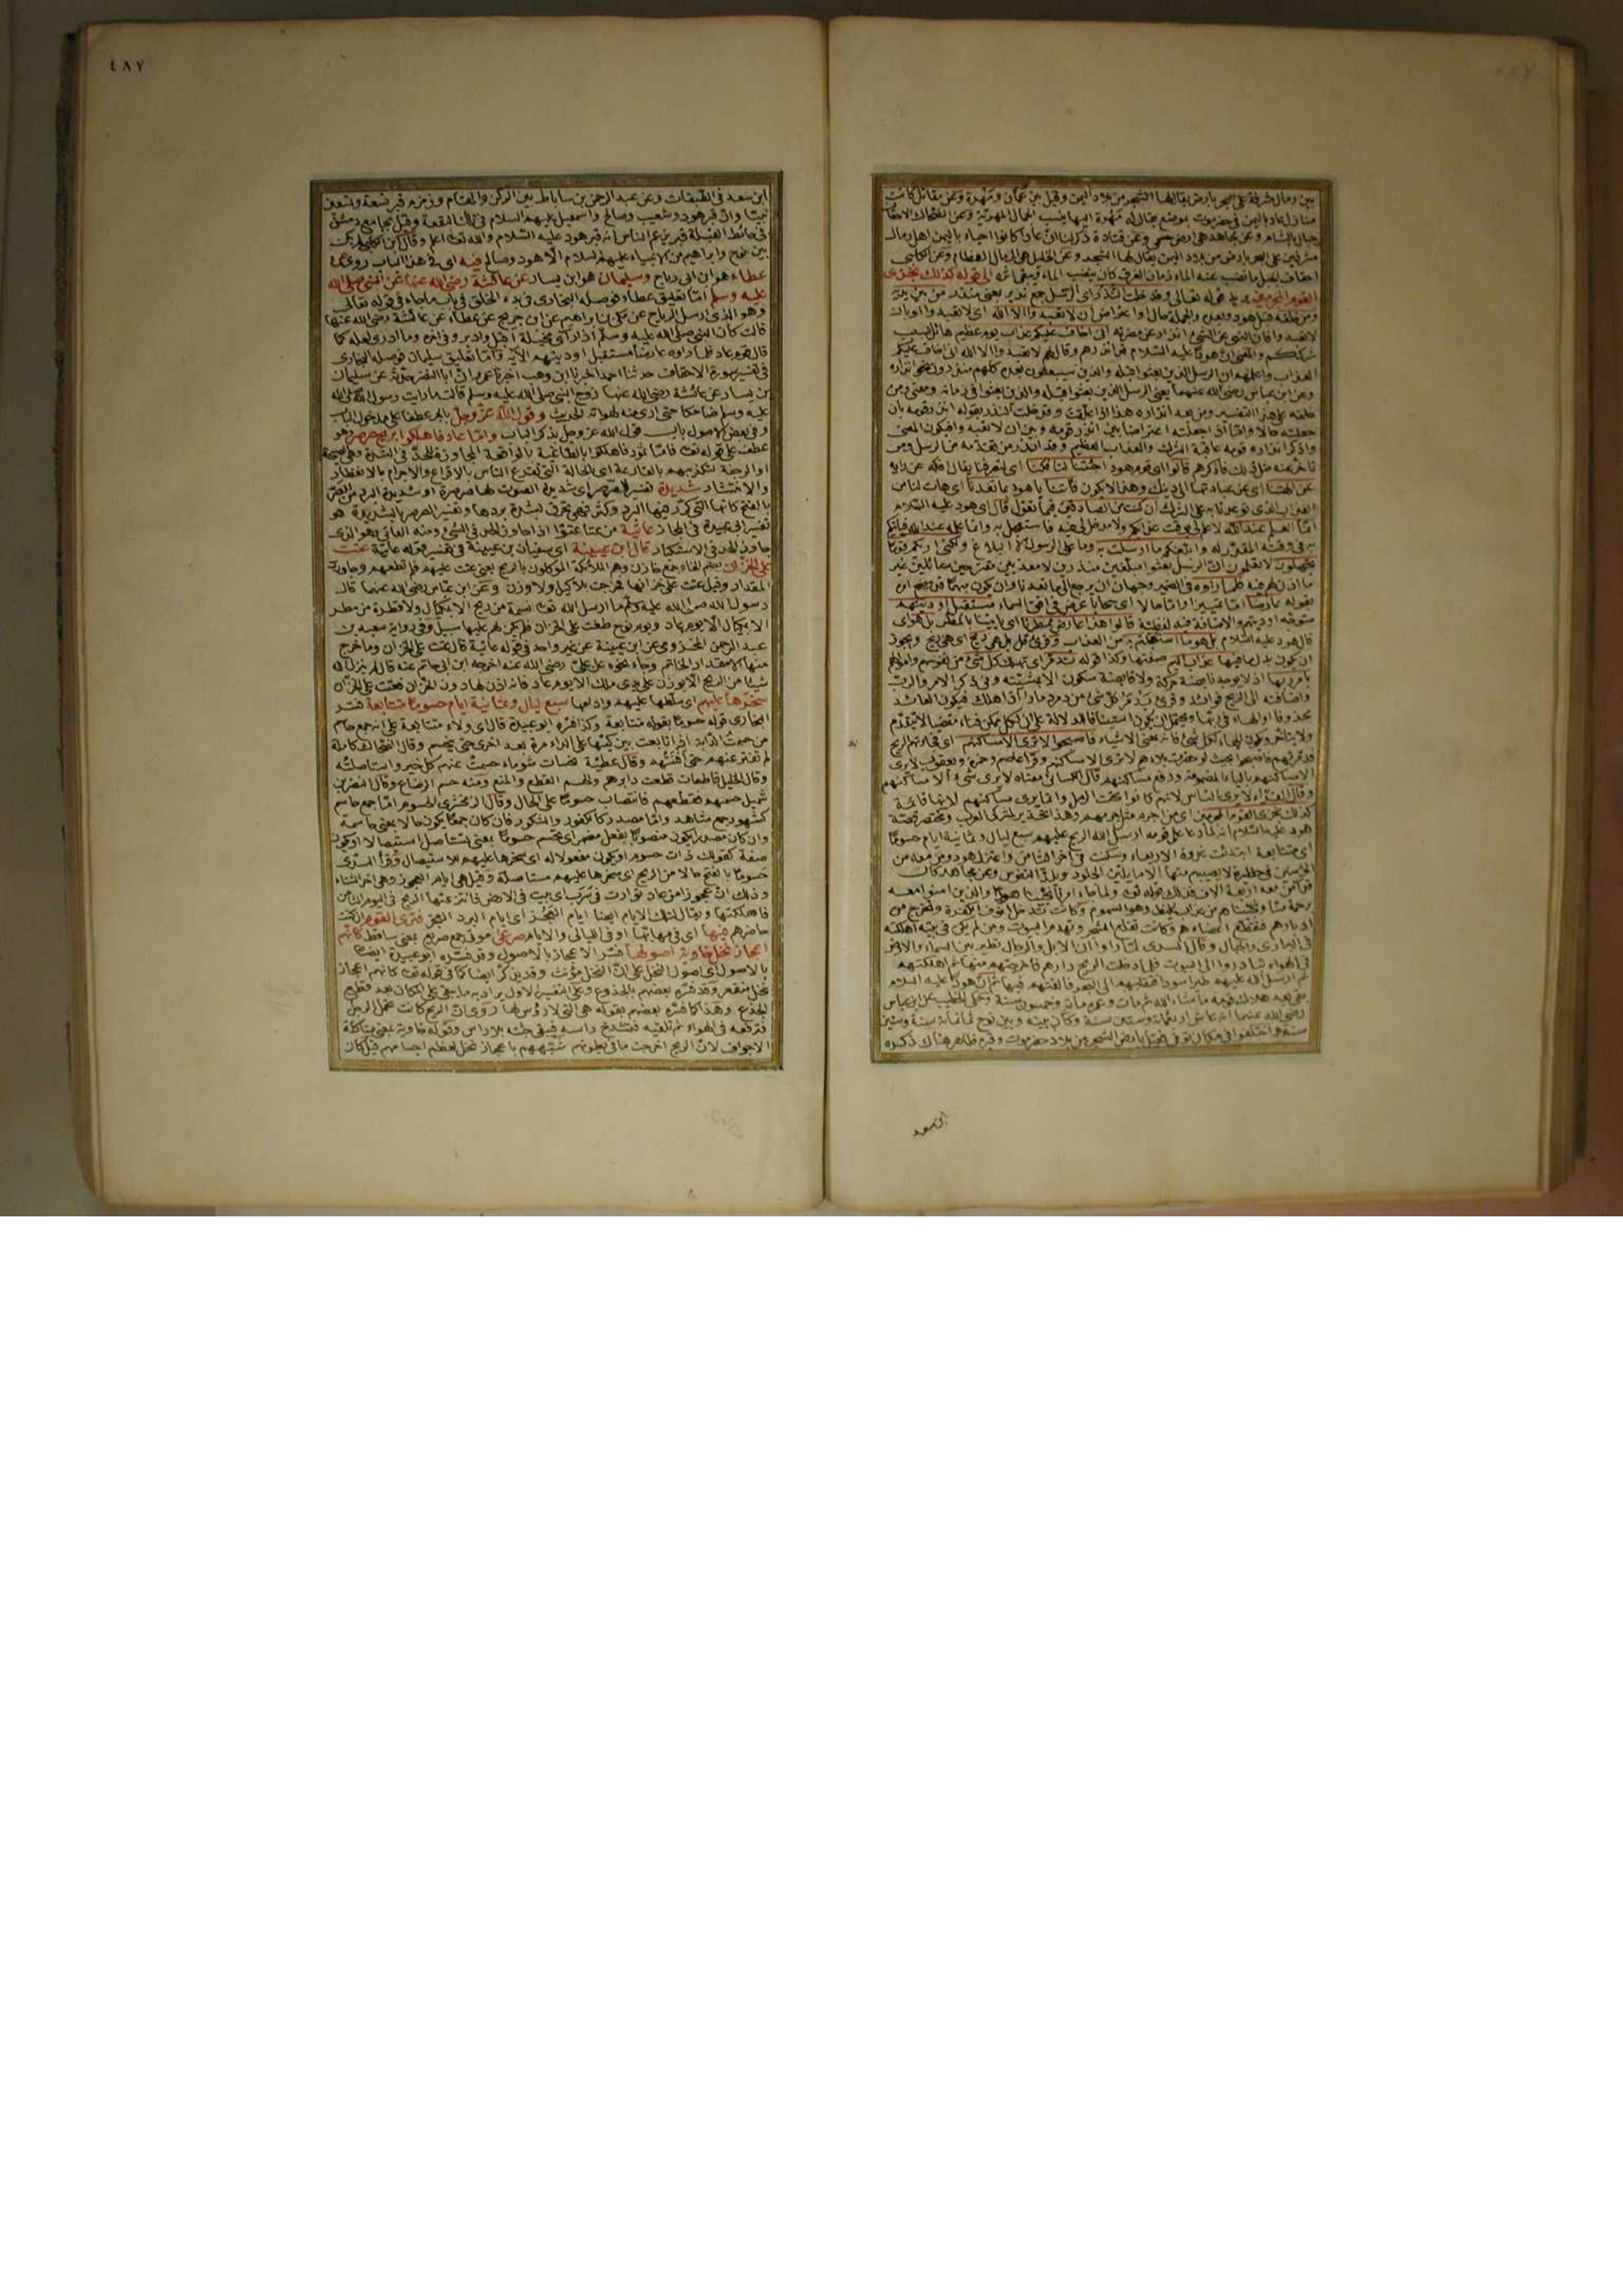 بين رمال مشرفة على البحر بارض يقال لها الشحر من بلاد اليمن وقيل بين عمان ومهرة وعن مقاتل كانت
منازل عاد باليمن في حضرموت بموضع يقال له مهرة اليها ينسب الجمال المهرية وعن الضحاك الاحقاف
جبال بالشام وعن مجاهد هي ارض حسمى وعن قتادة ذكر لنا ان عادا كانوا احياء باليمن اهل رمال
مشرفين على البحر بارض من بلاد اليمن يقال لها الشحر وعن الخليل هي الرمال العظام وعن الكلبي
احقاف الجبل ما نضب عنه الماء زمان الغرق كان ينضب الماء ويبقى اثره الى قوله كذلك نجزي
القوم المجرمين يريد قوله تعالى وقد خلت النذر اي الرسل جمع نذير بمعنى منذر من بين يديه
ومن خلفه قبل هود وبعده والجملة حال او اعتراض ان لا تعبدوا الا الله اي لا تعبدوا او بان
لا تعبدوا فان النهي عن الشئ انذار عن مضرته اني اخاف عليكم عذاب يوم عظيم هائل بسبب
شرككم والمعنى ان هودا عليه السلام قد انذرهم وقال لهم لا تعبدوا الا الله اني اخاف عليكم
العذاب واعلمهم ان الرسل الذين بعثوا قبله والذين سيبعثون بعده كلهم منذرون نحو انذاره
وعن ابن عباس رضي الله عنهما يعني الرسل الذين بعثوا قبله والذين بعثوا في زمانه ومعنى ومن
خلفه على هذا التفسير ومن بعد انذاره هذا اذا علقت وقد خلت النذر بقوله انذر قومه بان
جعلته حالا واما اذا جعلته اعتراضا بين انذر قومه وبين ان لا تعبدوا فيكون المعنى
واذكر انذاره قومه عاقبة الشرك والعذاب العظيم وقد انذر من تقدمه من الرسل ومن
تاخر عنه مثل ذلك فاذكرهم قالوا اي قوم هود اجئتنا لتأفكنا اي لتصرفنا يقال افكه عن رايه
عن الهتنا اي عن عبادتها الى دينك وهذا لا يكون فأتنا يا هود بما تعدنا اي هات لنا من
العذاب الذي توعدنا به على الشرك ان كنت من الصادقين فيما تقول قال اي هود عليه السلام
انما العلم عند الله لا علم لي بوقت عذابكم ولا مدخل لي فيه فاستعجل به وانما علمه عند الله فيأتيكم
به في وقته المقدر له وابلغكم ما ارسلت به وما على الرسول الا البلاغ ولكني اراكم قوما
تجهلون لا تعلمون ان الرسل بعثوا مبلغين منذرين لا معذبين مقترحين سائلين غير
ما اذن لهم فيه فلما راوه في الضمير وجهان ان يرجع الى ما تعدنا وان يكون مبهما قد وضح امره
بقوله عارضا اما تمييزا واما حالا اي سحابا عرض في افق السماء مستقبل اوديتهم
متوجه اوديتهم والاضافة فيه لفظية قالوا هذا عارض ممطرنا اي ياتينا بالمطر بل هو اي
قال هود عليه السلام بل هو ما استعجلتم به من العذاب وقرئ قل بل هي ريح اي هي ريح ويجوز
ان يكون بدل ما فيها عذاب اليم صفتها وكذا قوله تدمر اي تهلك كل شئ من نفوسهم واموالهم
بامر ربها اذ لا يوجد نابضة حركة ولا قابضة سكون الا بمشيئته وفي ذكر الامر والرب
واضافته الى الريح فوائد وقرئ يدمر كل شئ من دمر دمارا اذا هلك فيكون العائد
محذوفا او الهاء في ربها ويحتمل ان يكون استئنافا للدلالة على ان لكل ممكن فناء مقضيا لا يتقدم
ولا يتاخر وتكون الهاء لكل شئ فانه بمعنى الاشياء فاصبحوا لا ترى الا مساكنهم اي فجاءتهم الريح
فدمرتهم فاصبحوا بحيث لو حضرت بلادهم لا ترى الا مساكنهم وقرأ عاصم وحمزة ويعقوب لا يرى
الا مساكنهم بالياء المضمومة ورفع مساكنهم قال الكسائي معناه لا يرى شئ الا مساكنهم
وقال الفراء لا يرى الناس لانهم كانوا تحت الرمل وانما يرى مساكنهم لانها قائمة
كذلك نجزي القوم المجرمين اي من اجرم مثل جرمهم وهذا تحذير لمشركي العرب ومختصر قصة
هود عليه السلام انه لما دعا على قومه ارسل الله الريح عليهم سبع ليال وثمانية ايام حسوما
اي متتابعة ابتدئت غدوة الاربعاء وسكنت في آخر الثامن واعتزل هود ومن معه من
المؤمنين في حظيرة لا يصيبهم منها الا ما يلين الجلود وتلذ النفوس وعن مجاهد كان
قد آمن معه اربعة الاف فذلك قوله تعالى ولما جاء امرنا نجينا هودا والذين امنوا معه
برحمة منا ونجيناهم من عذاب غليظ وهو السموم وكانت تدخل انوف الكفرة وتخرج من
ادبارهم فتقطع اعضاءهم وكانت تقلع الشجر وتهدم البيوت ومن لم يكن في بيته اهلكته
في البراري والجبال وقال السدي لما راوا ان الابل والرجال تطير بين السماء والارض
في الهواء تبادروا الى البيوت فلما دخلوا دخلت الريح دارهم فاخرجتهم منها ثم اهلكتهم
ثم ارسل الله عليهم طيرا سودا فنقلتهم الى البحر فالقتهم فيه ثم ان هودا عليه السلام
بقي بعد هلاك قومه ما شاء الله ثم مات وعمره مائة وخمسون سنة وحكى الخطيب عن ابن عباس
رضي الله عنهما انه عاش اربعمائة وستين سنة وكان بينه وبين نوح ثمانمائة سنة وستين
سنة واختلفوا في مكان توفي فقيل بارض الشحر من بلاد حضرموت وقبره ظاهر هناك ذكره
ابن سعد
٤٨٧
ابن سعد في الطبقات وعن عبد الرحمن بن ساباط بين الركن والمقام وزمزم قبر تسعة وتسعين
نبيا وان قبر هود وشعيب وصالح واسمعيل عليهم السلام في تلك البقعة وقيل بجامع دمشق
في حائط القبلة قبر يزعم الناس انه قبر هود عليه السلام والله تعالى اعلم وقال ابن الكلبي لم يكن
بين نوح وابراهيم من الانبياء عليهم السلام الا هود وصالح فيه اي في هذا الباب روى عن
عطاء هو ابن ابي رباح وسليمان هو ابن يسار عن عائشة رضي الله عنها عن النبي صلى الله
عليه وسلم اما تعليق عطاء فوصله البخاري في بدء الخلق في باب ما جاء في قوله تعالى
وهو الذي ارسل الرياح عن مكي بن ابراهيم عن ابن جريج عن عطاء عن عائشة رضي الله عنها
قالت كان النبي صلى الله عليه وسلم اذا راى مخيلة اقبل وادبر وفي اخره وما ادري لعله كما
قال قوم عاد فلما راوه عارضا مستقبل اوديتهم الآية واما تعليق سليمان فوصله البخاري
في تفسير سورة الاحقاف حدثنا احمد اخبرنا ابن وهب اخبرنا عمرو ان ابا النضر حدثه عن سليمان
بن يسار عن عائشة رضي الله عنها زوج النبي صلى الله عليه وسلم قالت ما رايت رسول الله صلى الله
عليه وسلم ضاحكا حتى ارى منه لهواته الحديث وقول الله عز وجل بالجر عطفا على مدخول الباب
وفي بعض الاصول باب قول الله عز وجل بذكر الباب واما عاد فاهلكوا بريح صرصر وهو
عطف على قوله تعالى فاما ثمود فاهلكوا بالطاغية بالواقعة المجاوزة للحد في الشدة وهي الصيحة
او الرجفة لتكذيبهم بالقارعة اي الحالة التي تقرع الناس بالافزاع والاجرام بالانفطار
والانتشار شديدة تفسير لصرصر اي شديدة الصوت لها صرصرة او شديدة البرد من الصر
بالفتح كانها التي كرر فيها البرد وكثر فهي تحرق لشدة بردها وتفسير الصرصر بالشديدة هو
تفسير ابي عبيدة في المجاز عاتية من عتا عتوا اذا جاوز الحد في الشئ ومنه العاتي وهو الذي
جاوز الحد في الاستكبار قال ابن عيينة اي سفيان بن عيينة في تفسير قوله عاتية عتت
على الخزان بضم الخاء جمع خازن وهم الملائكة الموكلون بالريح يعني عتت عليهم فلم تطعهم وجاوزت
المقدار وقيل عتت على خزانها فخرجت بلا كيل ولا وزن وعن ابن عباس رضي الله عنهما قال
رسول الله صلى الله عليه وسلم ما ارسل الله تعالى نسمة من ريح الا بمكيال ولا قطرة من مطر
الا بمكيال الا يوم عاد ويوم نوح طغت على الخزان فلم يكن لهم عليها سبيل وفي رواية سعيد بن
عبد الرحمن المخزومي عن ابن عيينة عن غير واحد في قوله عاتية قال عتت على الخزان وما خرج
منها الا مقدار الخاتم وجاء نحوه عن علي رضي الله عنه اخرجه ابن ابي حاتم عنه قال لم ينزل الله
شيئا من الريح الا بوزن على يدي ملك الا يوم عاد فانه اذن لها دون الخزان فعتت على الخزان
سخرها عليهم اي سلطها عليهم وادامها سبع ليال وثمانية ايام حسوما متتابعة فسر
البخاري قوله حسوما بقوله متتابعة وكذا فسره ابو عبيدة قال اي ولاء متتابعة على انه جمع حاسم
من حسمت الدابة اذا تابعت بين كيها على الداء مرة بعد اخرى حتى ينحسم وقال الضحاك كاملة
لم تفتر عنهم حتى افنتهم وقال عطية حسمات شؤماء حسمت عنهم كل خير واستاصلته
وقال الخليل قاطعات قطعت دابرهم والحسم القطع والمنع ومنه حسم الرضاع وقال النضر بن
شميل حسمهم فقطعهم فانتصاب حسوما على الحال وقال الزمخشري الحسوم اما جمع حاسم
كشهود جمع شاهد واما مصدر كالكفور والشكور فان كان جمعا يكون حالا يعني حاسمة
وان كان مصدرا يكون منصوبا بفعل مضمر اي تحسم حسوما بمعنى تستاصل استئصالا او يكون
صفة كقولك ذات حسوم او يكون مفعولا له اي سخرها عليهم للاستيصال وقرأ السدي
حسوما بالفتح حالا من الريح اي سخرها عليهم مستاصلة وقيل هي ايام العجوز وهي اخر الشتاء
وذلك ان عجوزا من عاد توارت في سرب اي بيت في الارض فانتزعتها الريح في اليوم الثامن
فاهلكتها ويقال لتلك الايام ايضا ايام العجز اي ايام البرد الشديد فترى القوم ان كنت
حاضرهم فيها اي في مهابها او في الليالي والايام صرعى موتى جمع صريع بمعنى ساقط كانهم
اعجاز نخل خاوية اصولها فسر الاعجاز بالاصول وقد فسره ابو عبيدة ايضا
بالاصول اي اصول النخل على ان النخل مؤنث وقد يذكر ايضا كما في قوله تعالى كانهم اعجاز
نخل منقعر وقد فسره بعضهم بالجذوع وعلى التفسير الاول يراد به ما يبقى على المكان بعد قطع
الجذع وهذا كما فسره بعضهم بقوله هي التي لا رؤس لها روى ان الريح كانت تحمل الرجل
فترفعه في الهواء ثم تلقيه فتشدخ راسه فيبقى جثة بلا راس وقوله خاوية يعني متاكلة
الاجواف لان الريح اخرجت ما في بطونهم شبههم باعجاز نخل لعظم اجسامهم قيل كان